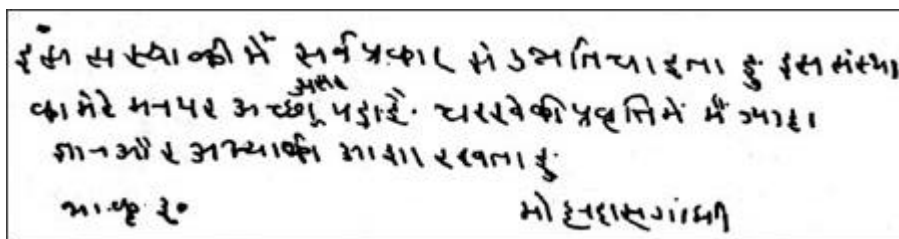 इस सस्था की मैं सर्व प्रकार से उन्नति चाहता हुं इस संस्था
का मेरे मन पर अच्छा असर पड़ा है. चरखे की प्रवृत्ति में मैं ज्यादा
ज्ञान और की आशा रखता हुं
मोहनदास गांधी